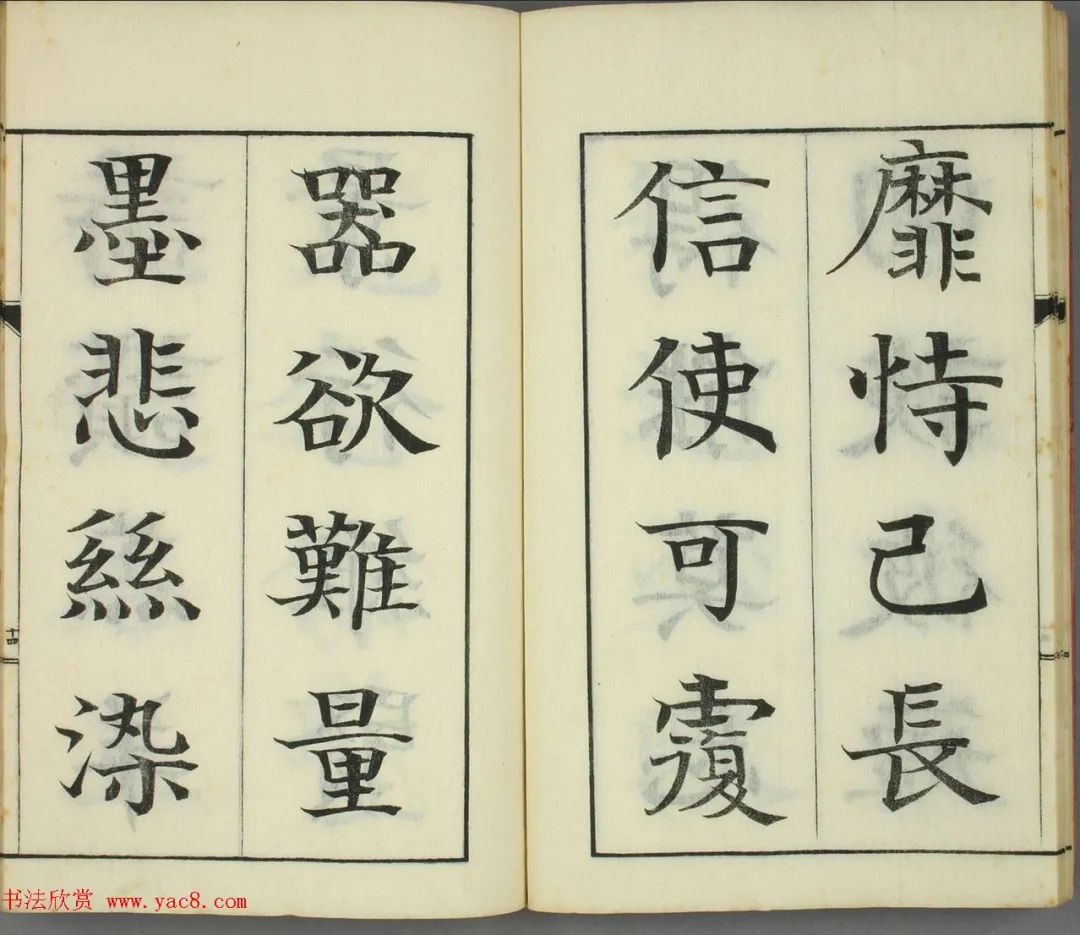 靡恃己長
信使可覆
器欲難量
墨悲絲染
十四
书法欣赏 www.yac8.com